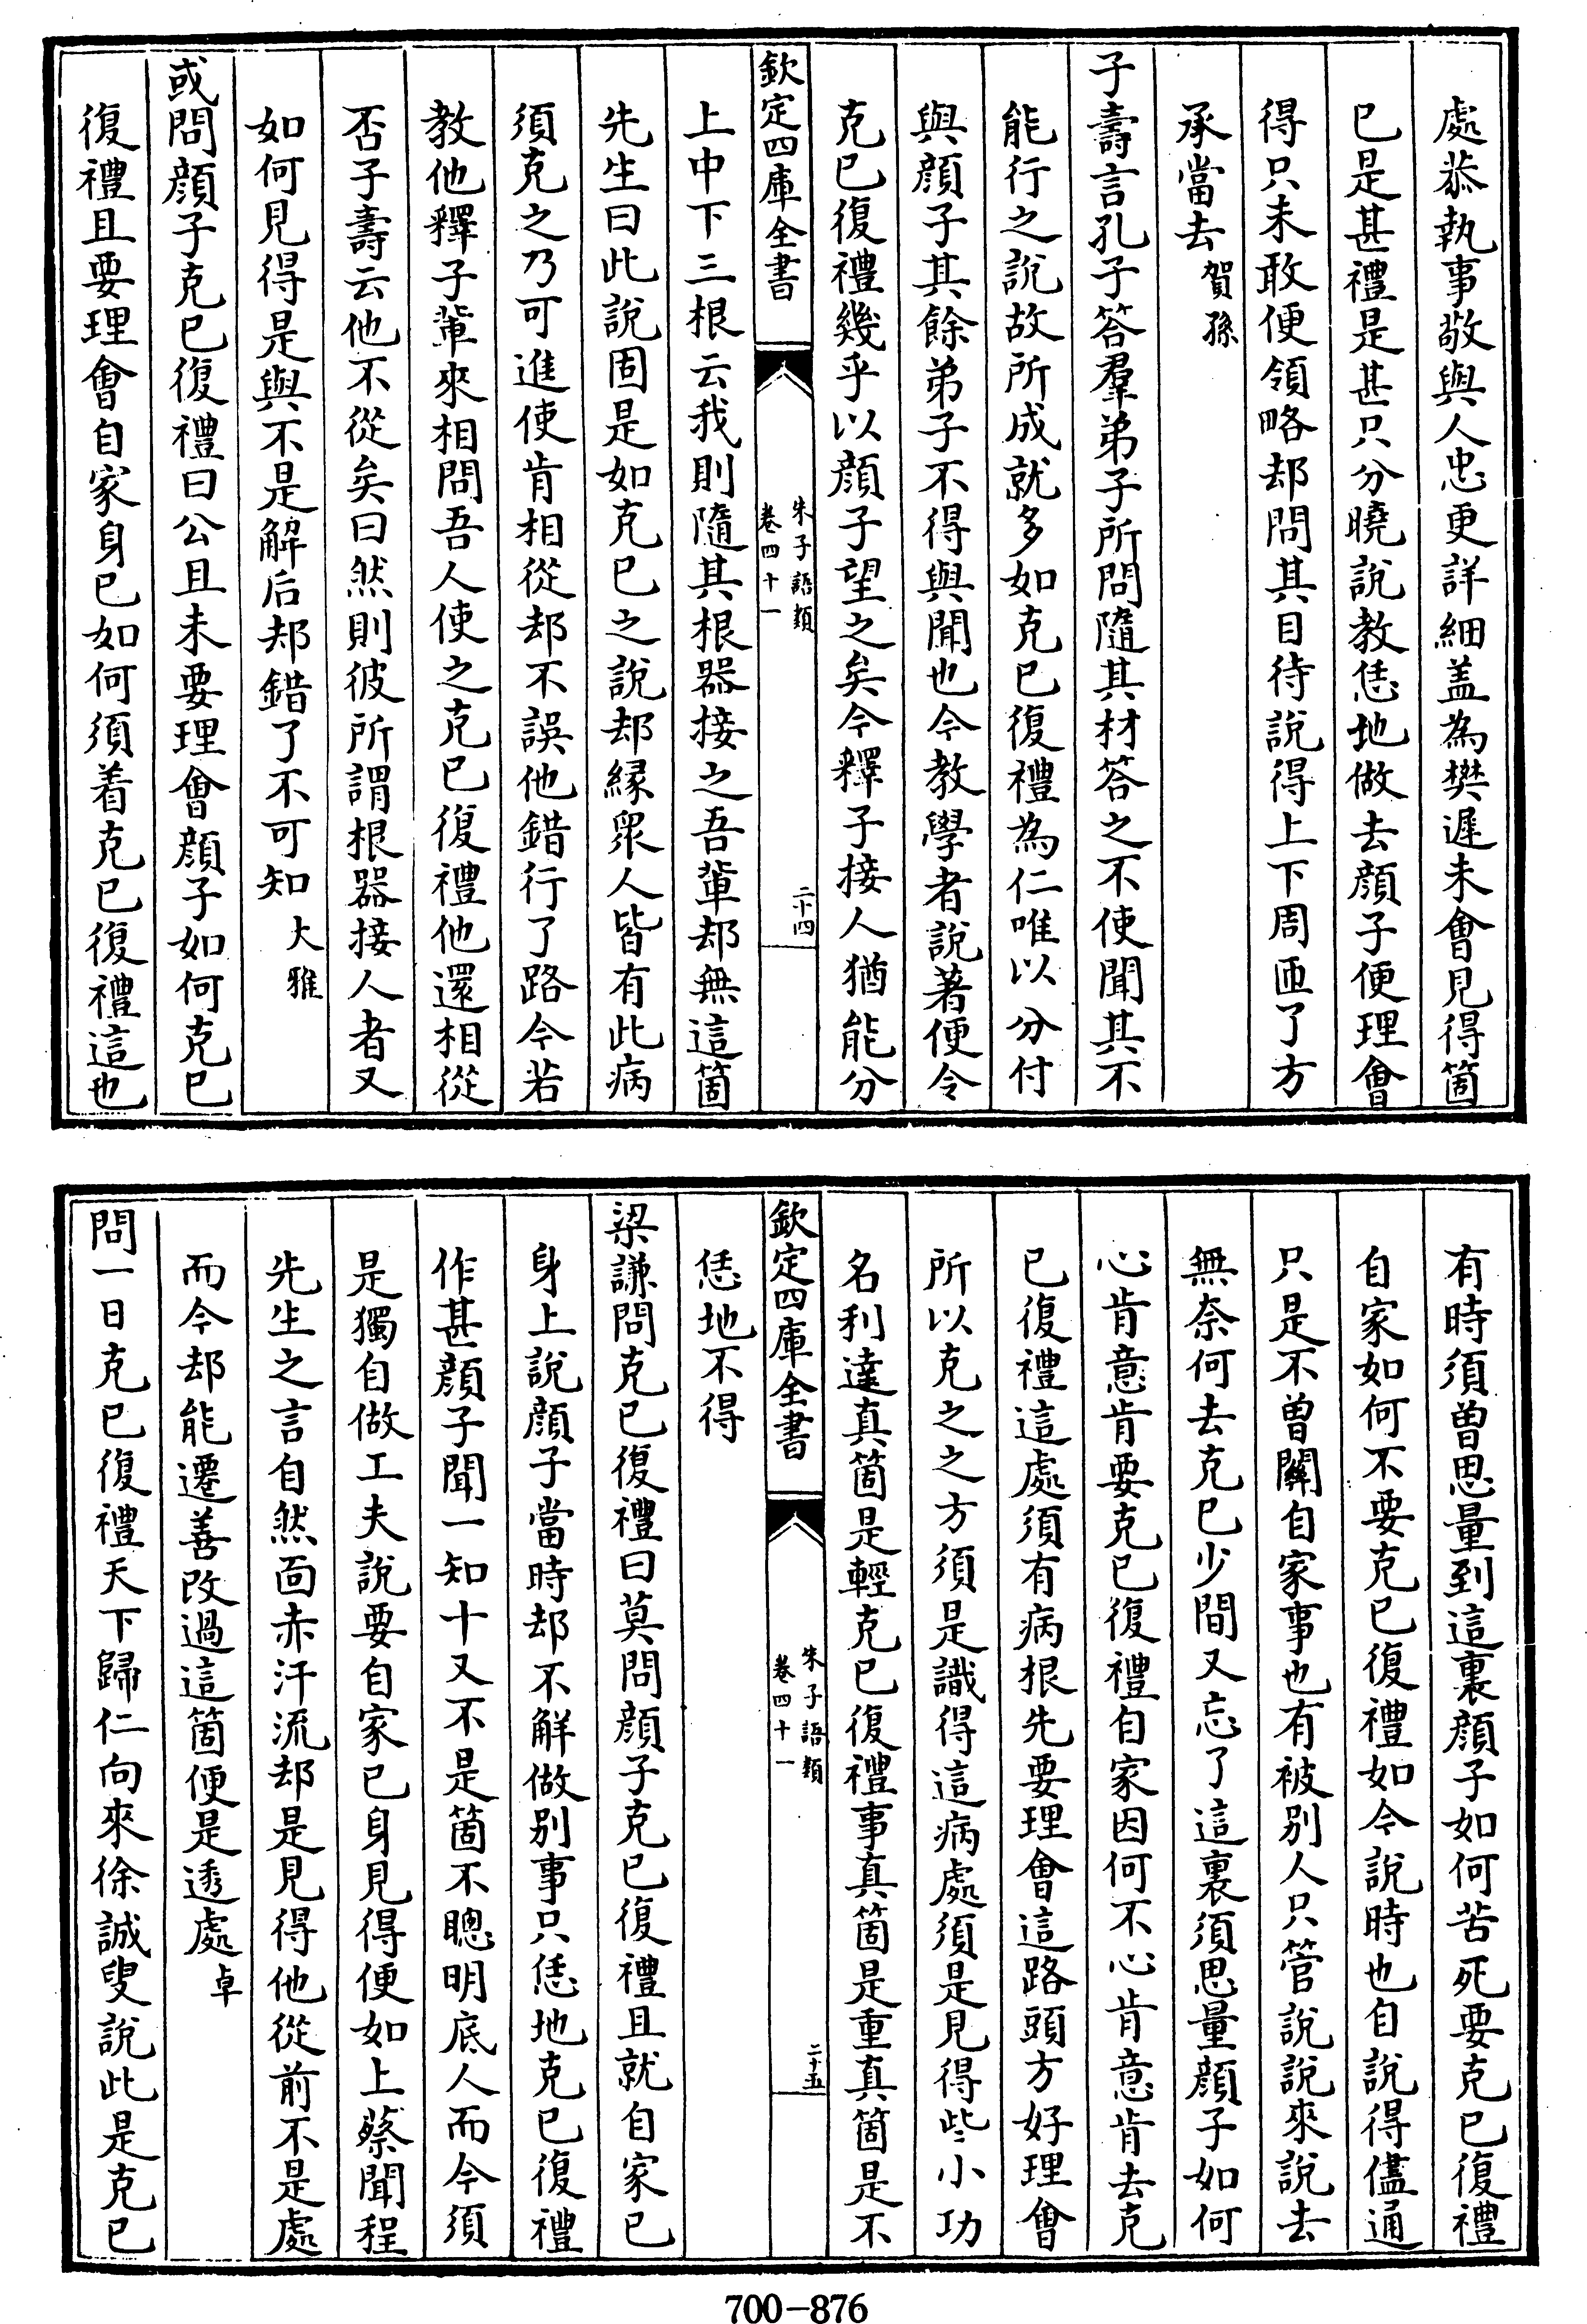 處恭執事敬與人忠更詳細盖為樊遲未會見得箇
已是甚禮是甚只分曉說教恁地做去顔子便理會
得只未敢便領略却問其目待說得上下周匝了方
承當去賀孫
子壽言孔子答羣弟子所問隨其材答之不使聞其不
能行之說故所成就多如克已復禮為仁唯以分付
與顔子其餘弟子不得與聞也今教學者說著便令
克已復禮幾乎以顔子望之矣今釋子接人猶能分
欽定四庫全書
朱子語類
卷四十一
二十四
上中下三根云我則隨其根器接之吾輩却無這箇
先生曰此說固是如克已之說却緣衆人皆有此病
須克之乃可進使肯相從却不誤他錯行了路今若
教他釋子輩來相問吾人使之克已復禮他還相從
否子壽云他不從矣曰然則彼所謂根器接人者又
如何見得是與不是解后却錯了不可知大雅
或問顔子克已復禮曰公且未要理會顔子如何克已
復禮且要理會自家身已如何須着克已復禮這也
有時須曾思量到這裏顔子如何苦死要克已復禮
自家如何不要克已復禮如今說時也自說得儘通
只是不曾關自家事也有被别人只管說說來說去
無奈何去克已少間又忘了這裏須思量顔子如何
心肯意肯要克已復禮自家因何不心肯意肯去克
已復禮這處須有病根先要理會這路頭方好理會
所以克之之方須是識得這病處須是見得些小功
名利達真箇是輕克已復禮事真箇是重真箇是不
欽定四庫全書
朱子語類
卷四十一
二十五
恁地不得
梁謙問克已復禮曰莫問顔子克已復禮且就自家已
身上說顔子當時却不解做别事只恁地克已復禮
作甚顔子聞一知十又不是箇不聰明底人而今須
是獨自做工夫說要自家已身見得便如上蔡聞程
先生之言自然面赤汗流却是見得他從前不是處
而今却能遷善改過這箇便是透處卓
問一日克已復禮天下歸仁向來徐誠叟說此是克已
700-876